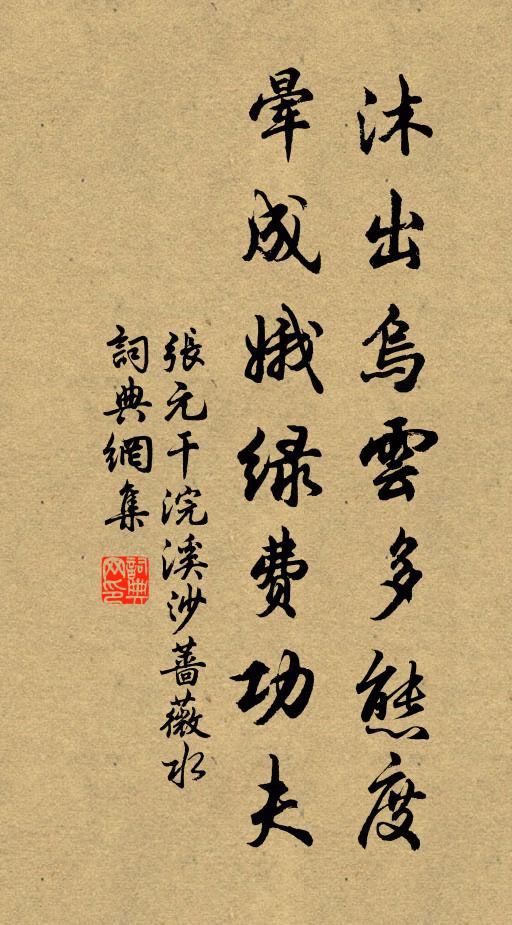 沐出烏雲多態度
暈成娥綠費功夫
張元干浣溪沙薔薇水
詞典網集
詞典網印